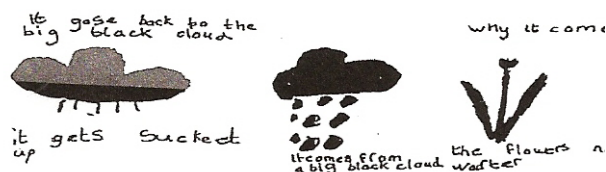 it gose back to the
big black cloud
it gets sucket
up
it comes from
a big black cloud
why it come
the flowers n
warter